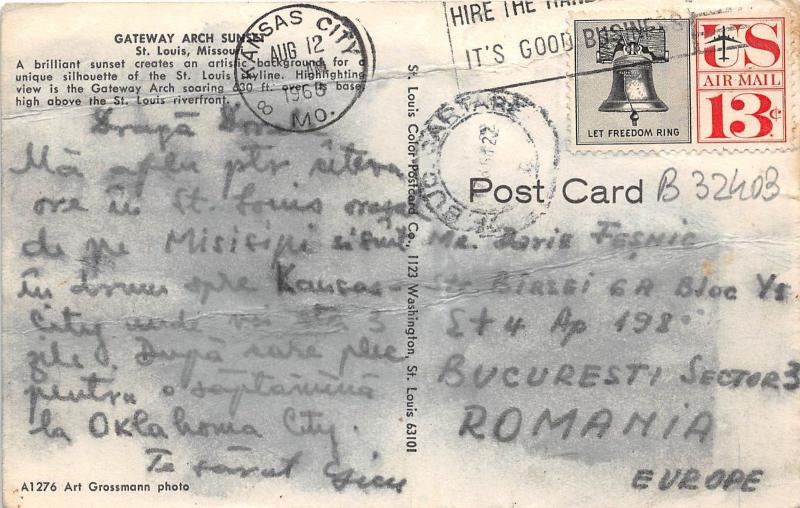 GATEWAY ARCH SUNSET
St. Louis, Missouri
A brilliant sunset creates an artistic background for a
unique silhouette of the St. Louis skyline. Highlighting
view is the Gateway Arch soaring 630 ft. over its base,
high above the St. Louis riverfront.
KANSAS CITY
AUG 12
1968
MO.
HIRE THE
IT'S GOOD BUSINESS
LET FREEDOM RING
US
AIR MAIL
13c
Post Card
B 32403
Dragă
Mă aflu ptr câteva
ore în St. Louis orașul
de pe Misisipi și sunt
în drum spre Kansas-
City unde voi sta 3
zile. După care plec
pentru o săptămână
la Oklahoma City.
Te sărut
Mr. Doric
Str BIRSEI 6A Bloc
Et 4 Ap 198
BUCURESTI SECTOR 3
ROMANIA
EUROPE
St. Louis Color Postcard Co., 1123 Washington, St. Louis 63101
A1276 Art Grossmann photo